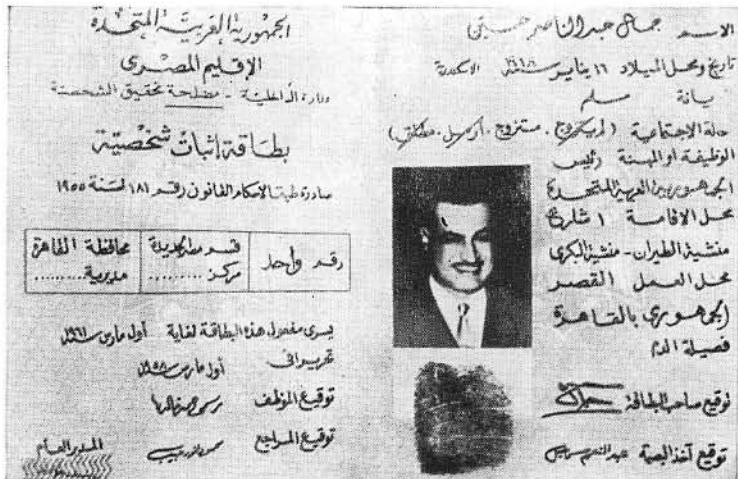 الاسم جمال عبد الناصر حسين
تاريخ ومحل الميلاد ١٦ يناير سنة ١٩١٨ الاسكندرية
يانة مسلم
حالة الاجتماعية (لم يتزوج. متزوج. أرمل. مطلق)
الوظيفة أو المهنة رئيس
الجمهورية العربية المتحدة
محل الاقامة ١ شارع
منشية الطيران - منشية البكرى
محل العمل القصر
الجمهورى بالقاهرة
فصيلة الدم
توقيع صاحب البطاقة
توقيع آخذ البصمة عبد المنعم
الجمهورية العربية المتحدة
الإقليم المصرى
وزارة الداخلية - مصلحة تحقيق الشخصية
بطاقة إثبات شخصية
صادرة طبقا لأحكام القانون رقم ١٨١ لسنة ١٩٥٥
رقم واحد
قسم مصر الجديدة
مركز ..........
محافظة القاهرة
مديرية ..........
يسرى مفعول هذه البطاقة لغاية أول مارس سنة ١٩٦١
تحريرا فى أول مارس سنة ١٩٥٨
توقيع الموظف
توقيع المراجع
المدير العام